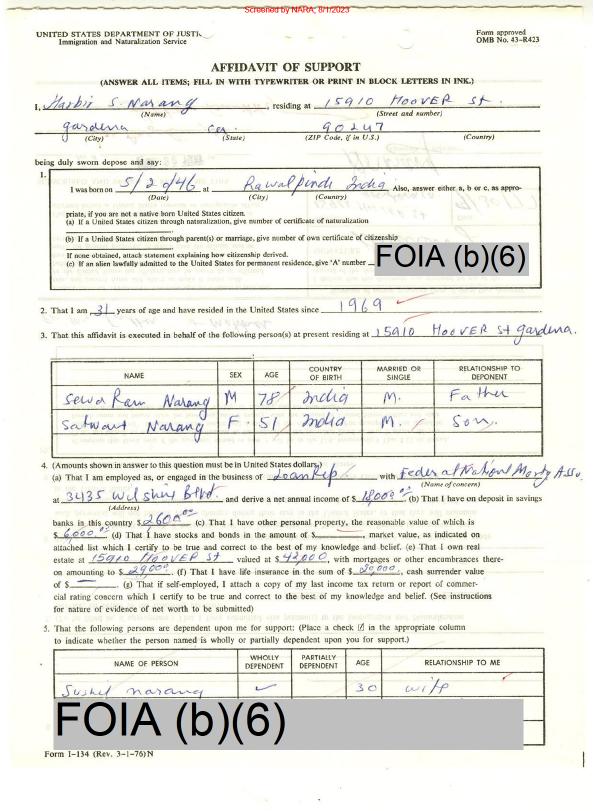 Screened by NARA, 8/1/2023
UNITED STATES DEPARTMENT OF JUSTIC
Immigration and Naturalization Service
Form approved
OMB No. 43-R423
AFFIDAVIT OF SUPPORT
(ANSWER ALL ITEMS; FILL IN WITH TYPEWRITER OR PRINT IN BLOCK LETTERS IN INK.)
I, Harbir S. Narang, residing at 15910 HOOVER St.
(Name) (Street and number)
gardena ca. 90247
(City) (State) (ZIP Code, if in U.S.) (Country)
being duly sworn depose and say:
1.
I was born on 5/20/46 at Rawalpindi India Also, answer either a, b or c, as appro-
(Date) (City) (Country)
priate, if you are not a native born United States citizen.
(a) If a United States citizen through naturalization, give number of certificate of naturalization
(b) If a United States citizen through parent(s) or marriage, give number of own certificate of citizenship
If none obtained, attach statement explaining how citizenship derived.
(c) If an alien lawfully admitted to the United States for permanent residence, give 'A' number
FOIA (b)(6)
2. That I am 31 years of age and have resided in the United States since 1969
3. That this affidavit is executed in behalf of the following person(s) at present residing at 15910 HOOVER St gardena.
NAME SEX AGE COUNTRY OF BIRTH MARRIED OR SINGLE RELATIONSHIP TO DEPONENT
Sewa Ram Narang M 78 India M. Father
Satwant Narang F. 51 India M. Son.
4. (Amounts shown in answer to this question must be in United States dollars)
(a) That I am employed as, or engaged in the business of Loan Rep with Federal National Mortg Asso.
(Name of concern)
at 3435 Wilshire Blvd. and derive a net annual income of $ 18,000.00 (b) That I have on deposit in savings
(Address)
banks in this country $ 2600.00 (c) That I have other personal property, the reasonable value of which is
$ 6,000.00 (d) That I have stocks and bonds in the amount of $ , market value, as indicated on
attached list which I certify to be true and correct to the best of my knowledge and belief. (e) That I own real
estate at 15910 HOOVER St valued at $ 42,000, with mortgages or other encumbrances there-
on amounting to $ 29,000. (f) That I have life insurance in the sum of $ 20,000, cash surrender value
of $ — (g) That if self-employed, I attach a copy of my last income tax return or report of commer-
cial rating concern which I certify to be true and correct to the best of my knowledge and belief. (See instructions
for nature of evidence of net worth to be submitted)
5. That the following persons are dependent upon me for support: (Place a check ☑ in the appropriate column
to indicate whether the person named is wholly or partially dependent upon you for support.)
NAME OF PERSON WHOLLY DEPENDENT PARTIALLY DEPENDENT AGE RELATIONSHIP TO ME
Sushil narang ✓ 30 wife
FOIA (b)(6)
Form I-134 (Rev. 3-1-76) N